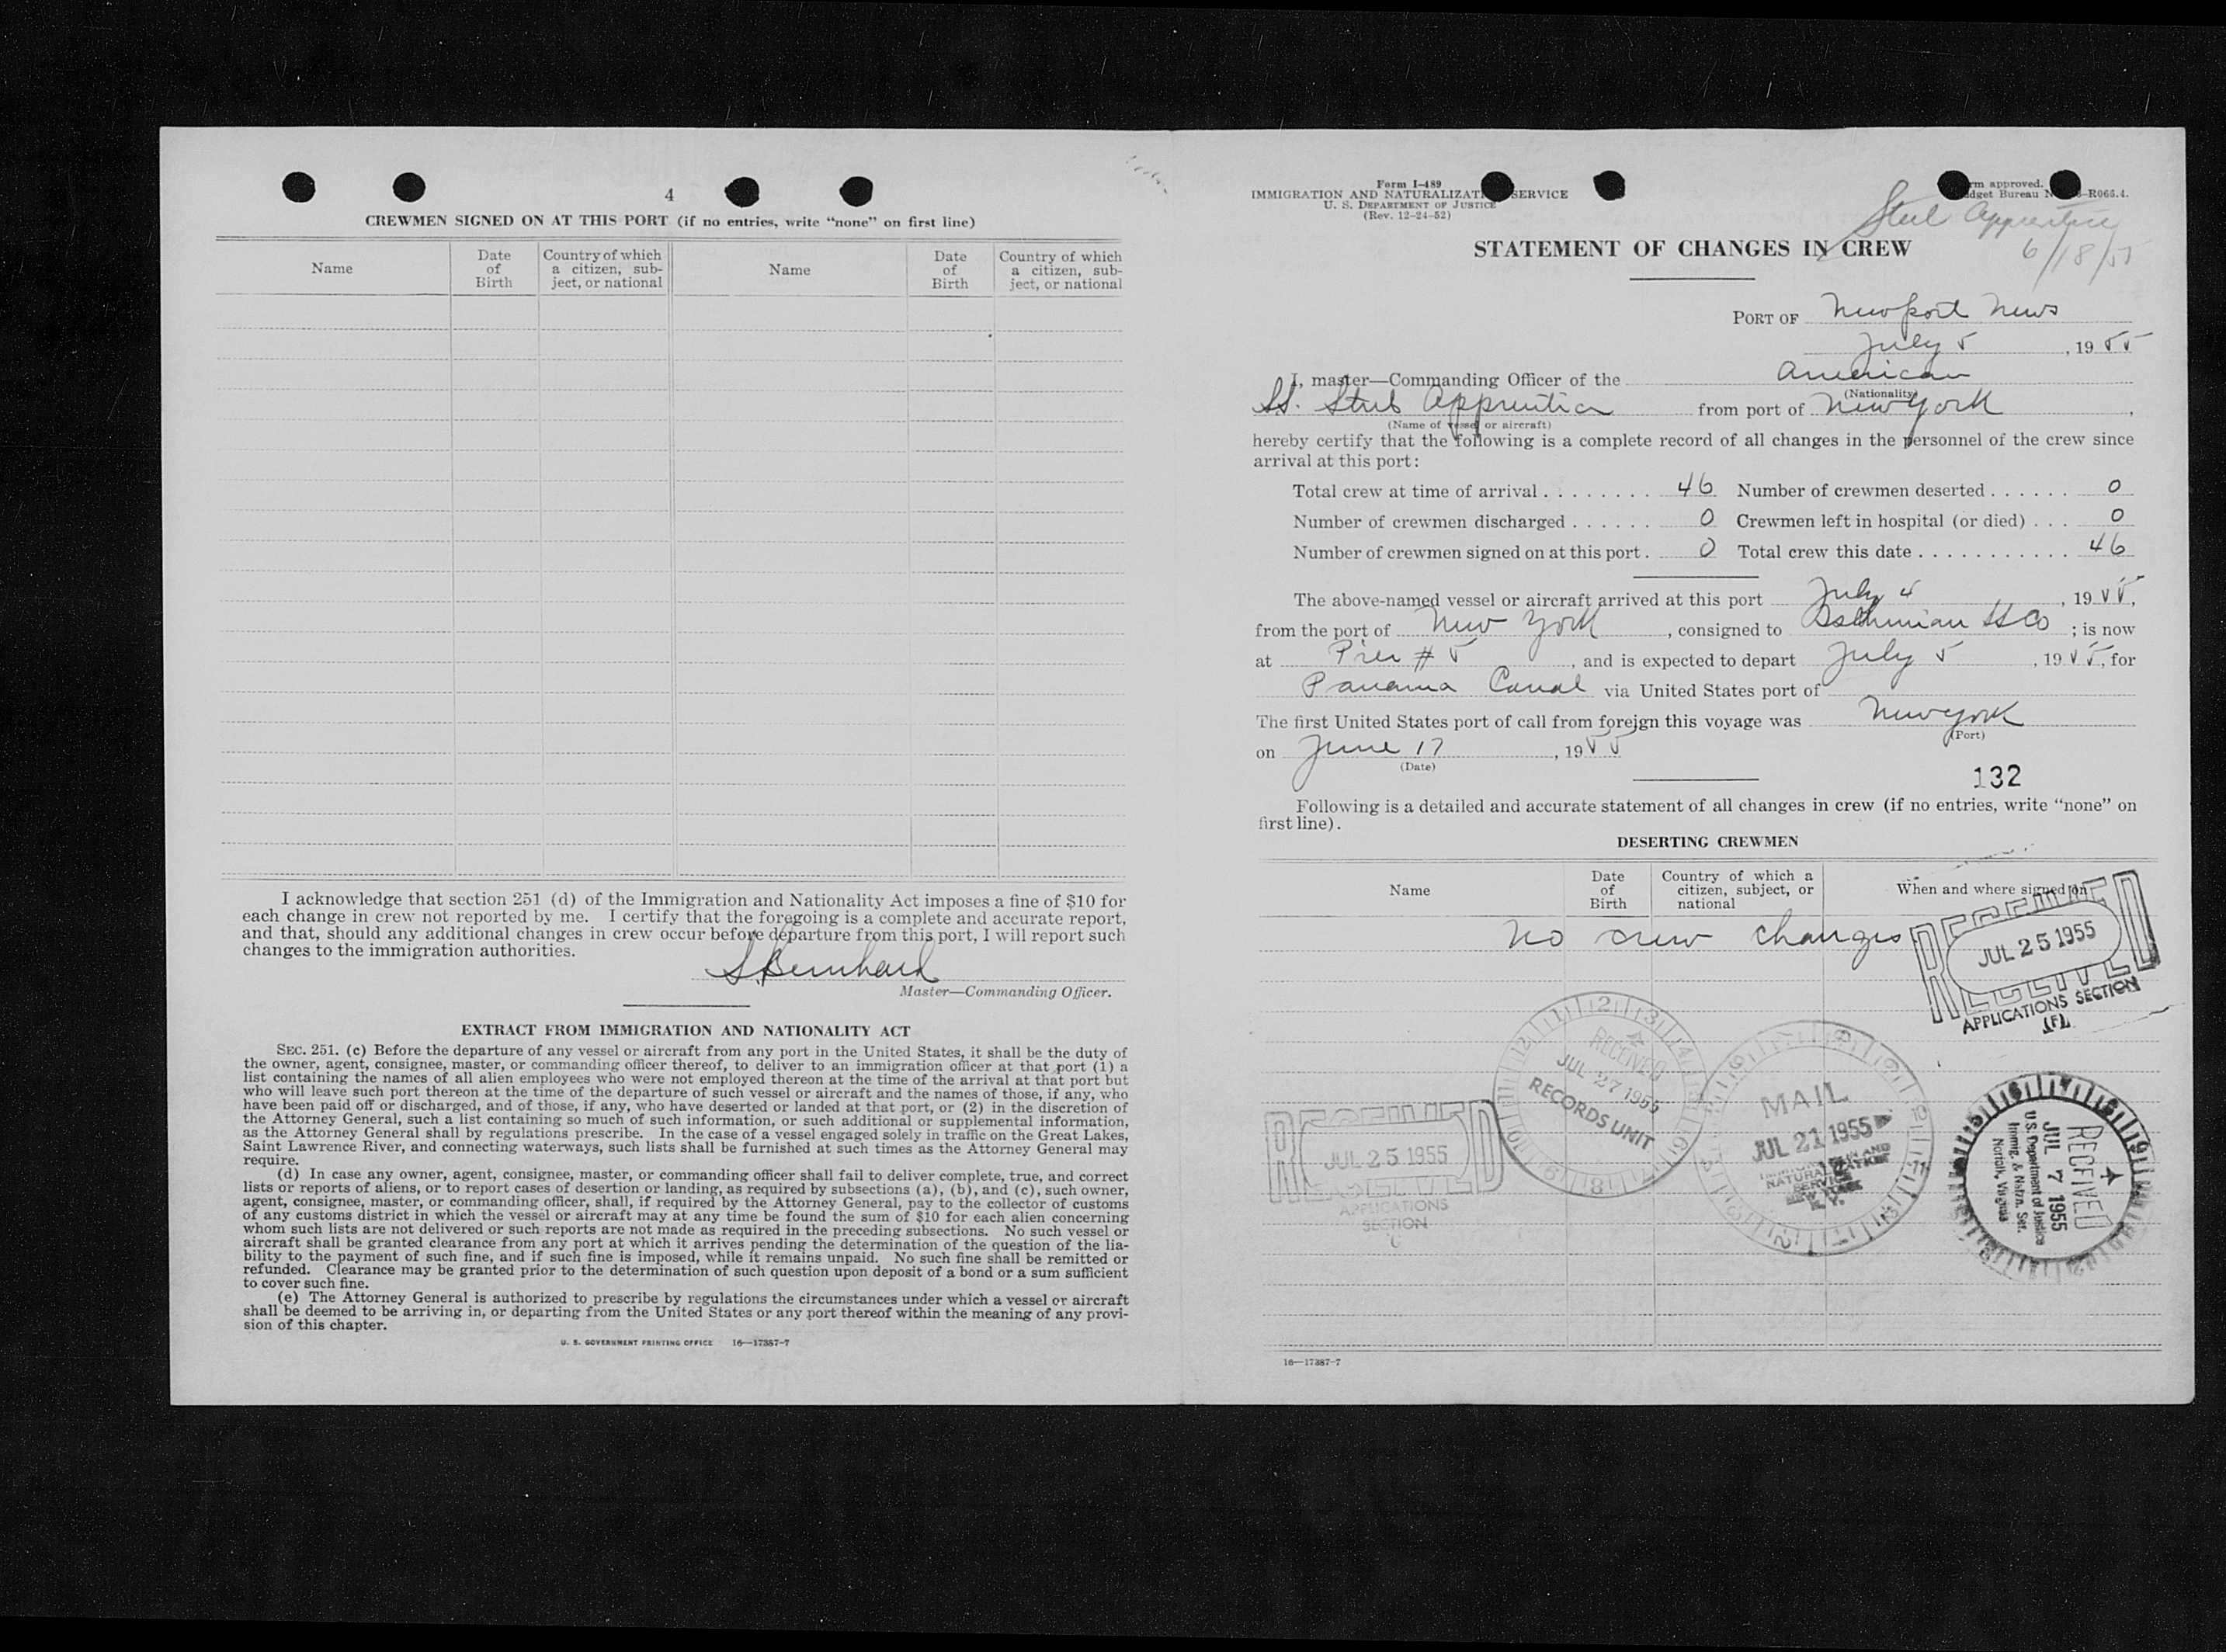 4
CREWMEN SIGNED ON AT THIS PORT (if no entries, write "none" on first line)
Name
Date of Birth
Country of which a citizen, sub-ject, or national
Name
Date of Birth
Country of which a citizen, sub-ject, or national
I acknowledge that section 251 (d) of the Immigration and Nationality Act imposes a fine of $10 for
each change in crew not reported by me. I certify that the foregoing is a complete and accurate report,
and that, should any additional changes in crew occur before departure from this port, I will report such
changes to the immigration authorities.
S. Bernhard
Master—Commanding Officer.
EXTRACT FROM IMMIGRATION AND NATIONALITY ACT
SEC. 251. (c) Before the departure of any vessel or aircraft from any port in the United States, it shall be the duty of
the owner, agent, consignee, master, or commanding officer thereof, to deliver to an immigration officer at that port (1) a
list containing the names of all alien employees who were not employed thereon at the time of the arrival at that port but
who will leave such port thereon at the time of the departure of such vessel or aircraft and the names of those, if any, who
have been paid off or discharged, and of those, if any, who have deserted or landed at that port, or (2) in the discretion of
the Attorney General, such a list containing so much of such information, or such additional or supplemental information,
as the Attorney General shall by regulations prescribe. In the case of a vessel engaged solely in traffic on the Great Lakes,
Saint Lawrence River, and connecting waterways, such lists shall be furnished at such times as the Attorney General may
require.
(d) In case any owner, agent, consignee, master, or commanding officer shall fail to deliver complete, true, and correct
lists or reports of aliens, or to report cases of desertion or landing, as required by subsections (a), (b), and (c), such owner,
agent, consignee, master, or commanding officer, shall, if required by the Attorney General, pay to the collector of customs
of any customs district in which the vessel or aircraft may at any time be found the sum of $10 for each alien concerning
whom such lists are not delivered or such reports are not made as required in the preceding subsections. No such vessel or
aircraft shall be granted clearance from any port at which it arrives pending the determination of the question of the lia-
bility to the payment of such fine, and if such fine is imposed, while it remains unpaid. No such fine shall be remitted or
refunded. Clearance may be granted prior to the determination of such question upon deposit of a bond or a sum sufficient
to cover such fine.
(e) The Attorney General is authorized to prescribe by regulations the circumstances under which a vessel or aircraft
shall be deemed to be arriving in, or departing from the United States or any port thereof within the meaning of any provi-
sion of this chapter.
U. S. GOVERNMENT PRINTING OFFICE 16—17387-7
Form I-489
IMMIGRATION AND NATURALIZATI SERVICE
U. S. DEPARTMENT OF JUSTICE
(Rev. 12-24-52)
rm approved.
dget Bureau N -R066.4.
Steel Apprentice
6/18/55
STATEMENT OF CHANGES IN CREW
PORT OF Newport News
July 5, 1955
I, master—Commanding Officer of the American
(Nationality)
SS. Steel Apprentice from port of New York,
(Name of vessel or aircraft)
hereby certify that the following is a complete record of all changes in the personnel of the crew since
arrival at this port:
Total crew at time of arrival 46 Number of crewmen deserted 0
Number of crewmen discharged 0 Crewmen left in hospital (or died) 0
Number of crewmen signed on at this port 0 Total crew this date 46
The above-named vessel or aircraft arrived at this port July 4, 1955,
from the port of New York, consigned to Isthmian SS Co; is now
at Pier # 5, and is expected to depart July 5, 1955, for
Panama Canal via United States port of
The first United States port of call from foreign this voyage was New York
(Port)
on June 17, 1955
(Date)
132
Following is a detailed and accurate statement of all changes in crew (if no entries, write "none" on
first line).
DESERTING CREWMEN
Name
Date of Birth
Country of which a citizen, subject, or national
When and where signed on
No crew changes
RECEIVED
JUL 25 1955
APPLICATIONS SECTION
RECEIVED
JUL 27 1955
RECORDS UNIT
MAIL
JUL 21 1955
RECEIVED
JUL 25 1955
APPLICATIONS
SECTION
RECEIVED
JUL 7 1955
U.S. Department of Justice
Immig. & Natzn. Ser.
Norfolk, Virginia
16—17387-7